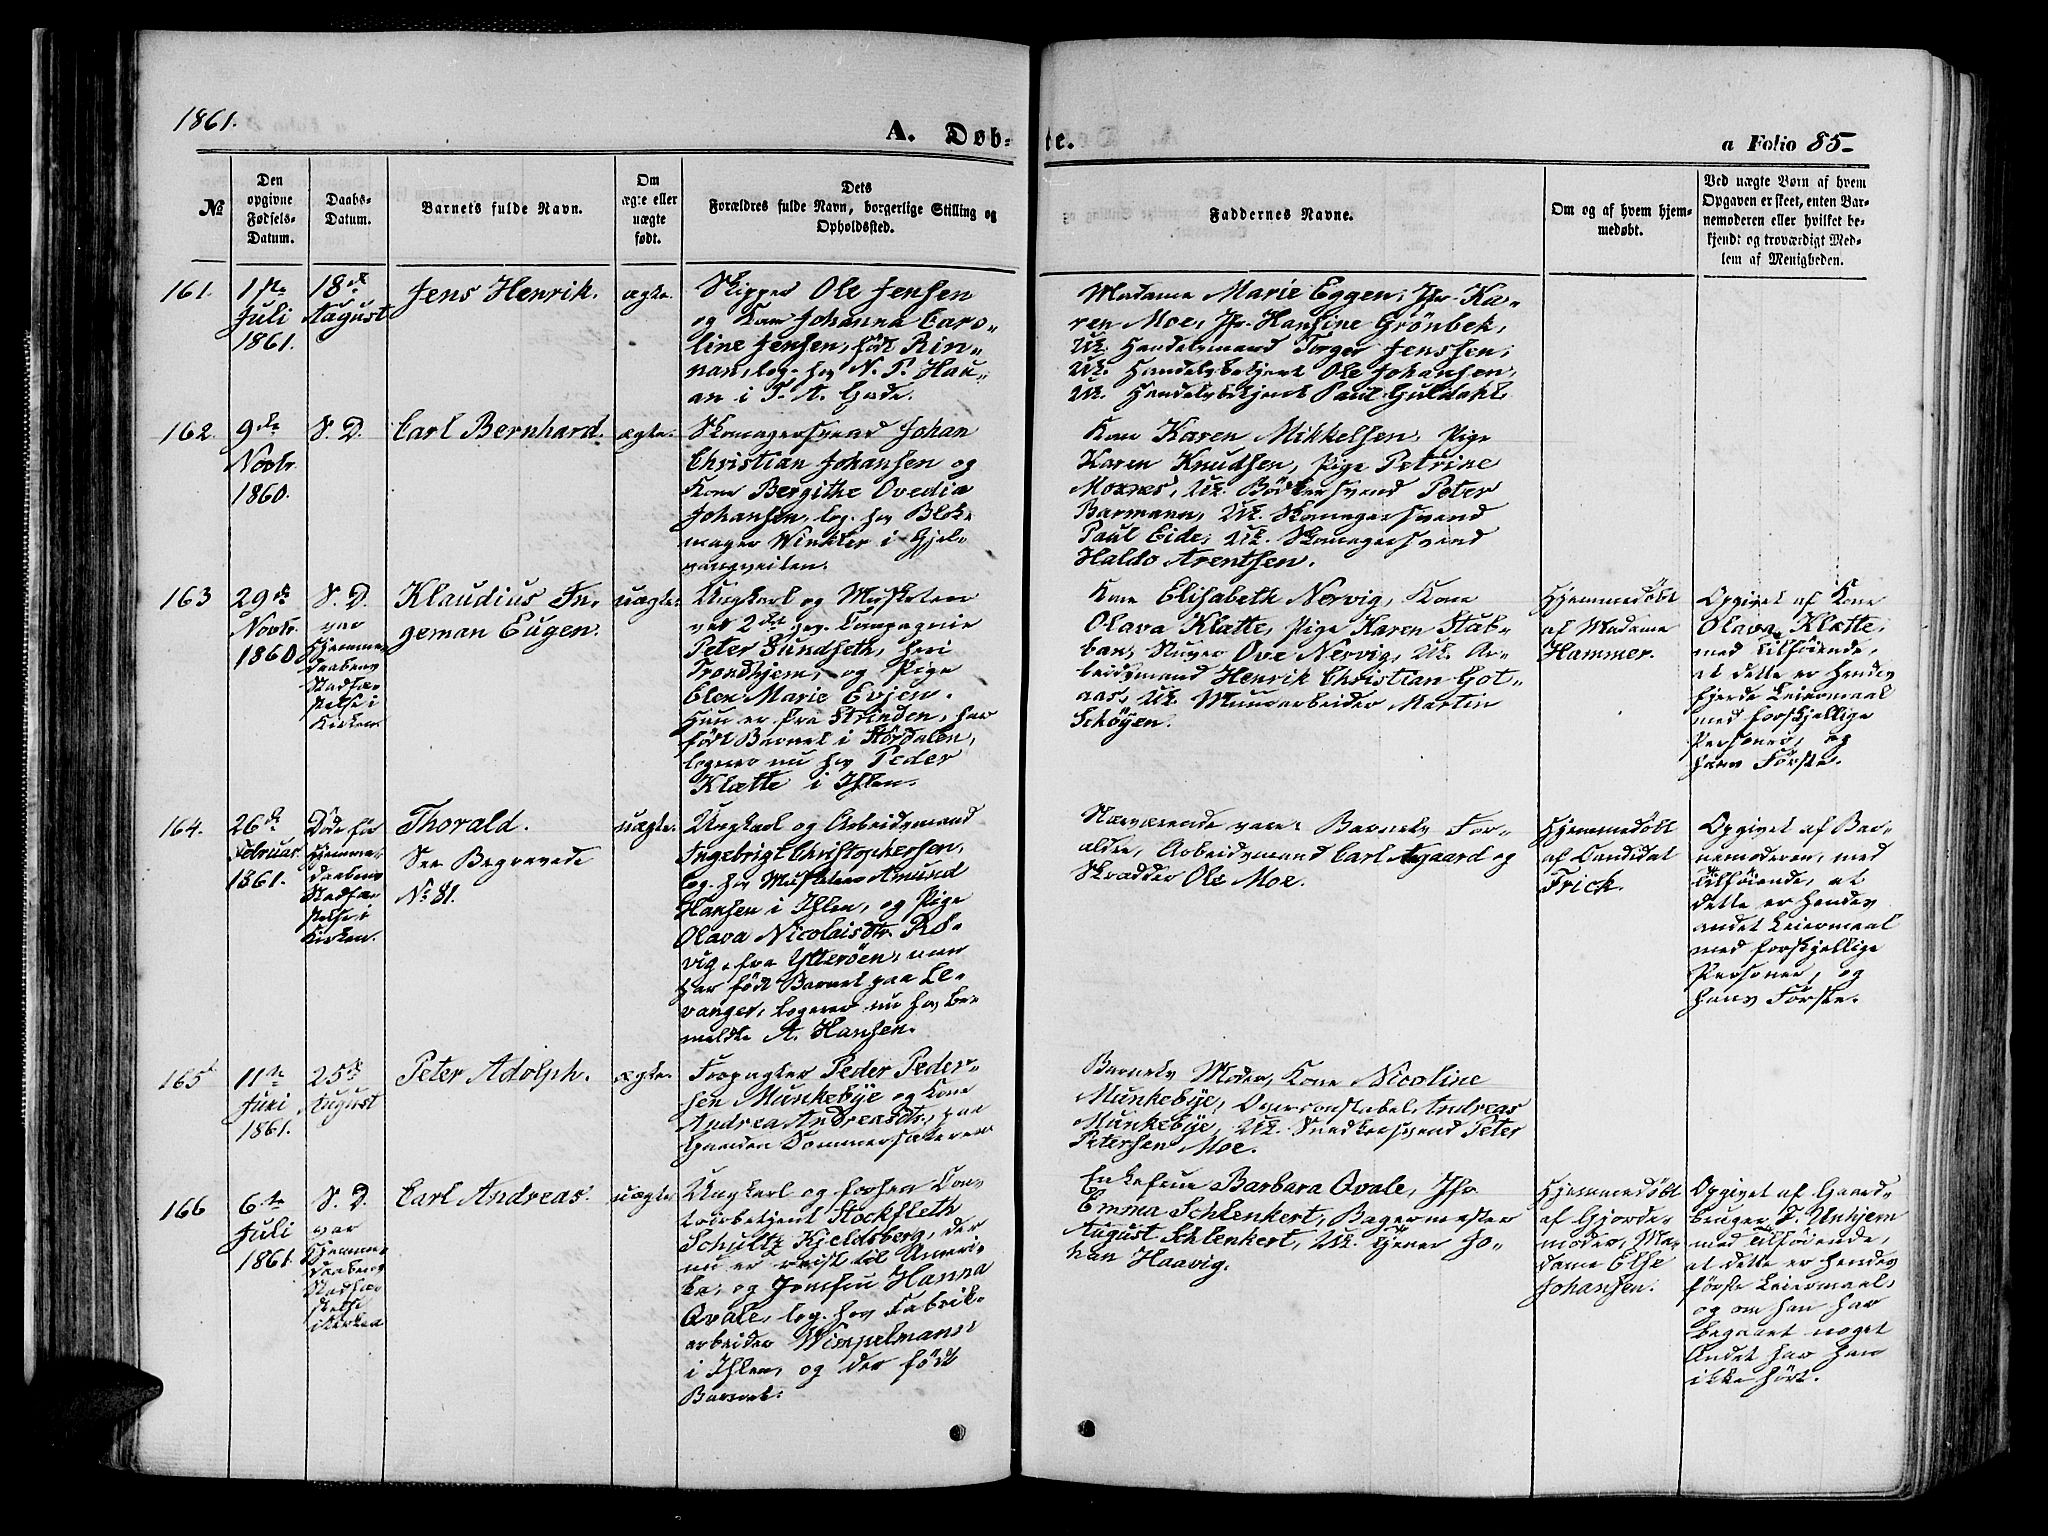 1861.
A. Døb-
te.
a Folio 85-
№
Den
opgivne
Fødsels-
Datum.
Daabs-
Datum.
Barnets fulde Navn.
Om
ægte eller
uægte
født.
Dets
Forældres fulde Navn, borgerlige Stilling og
Opholdssted.
Faddernes Navne.
Om og af hvem hjem-
medøbt.
Ved uægte Børn af hvem
Opgaven er skeet, enten Bar-
nemoderen eller hvilket be-
kjendt og troværdigt Med-
lem af Menigheden.
161.
1ste
Juli
1861.
18de
August
Jens Henrik.
ægte.
Skipper Ole Jensen
og Kone Johanna Caro-
line Jensen, født Rin-
nan, log. hos N. P. Hau-
an i T. A. Gade.
Madame Marie Eggen, Jfr. Ka-
ren Moe, Jfr. Hansine Grönbek,
Uk. Handelsmand Torger Jenssen,
Uk. Handelsbetjent Ole Johansen,
Uk. Handelsbetjent Paul Guldahl.
162.
9de
Novbr.
1860.
S. D.
Carl Bernhard.
ægte.
Skomagersvend Johan
Christian Johansen og
Kone Bergithe Ovedia
Johansen, log. hos Blok-
mager Winkler i Gjel-
vangveiten.
Kone Karen Mikkelsen, Pige
Karen Knudsen, Pige Petrine
Moxnes, Uk. Bödkersvend Peter
Barmann, Uk. Skomagersvend
Paul Eide, Uk. Skomagersvend
Haldo Arentsen.
163
29de
Novbr.
1860
S. D.
var
Hjemme-
daabens
Stadfæ-
stelse i
Kirken.
Klaudius In-
geman Eugen.
uægte.
Ungkarl og Musketen
ved 2det gev. Compagnie
Peter Sundseth, heri
Trondhjem, og Pige
Elen Marie Evjen.
Hun er fra Strinden, har
født Barnet i Störd​alen,
logerer nu hos Peder
Klætte i Ihlen.
Kone Elisabeth Nervig, Kone
Olava Klætte, Pige Karen Stub-
ban, Ove Nervig, Uk. Ar-
beidsmand Henrik Christian Got-
aas, Uk. Muurarbeider Martin
Schöyen.
Hjemmedöbt
af Madame
Hammer.
Opgivet af Kone
Olava Klætte,
med Tilföiende,
at dette er hendes
fjerde Leiermaal
med forskjellige
Personer, og
hans Förste.
164.
26de
Februar
1861.
Døde før
Hjemme-
daabens
Stadfæ-
stelse i
Kirken.
Thorald.
See Begravede
No 81.
uægte.
Ungkarl og Arbeidsmand
Ingebrigt Christophersen,
log. hos Musketeer Amund
Hansen i Ihlen, og Pige
Olava Nicolaisdtr. Rö-
vig, fra Ytteröen, men
har født Barnet paa Le-
vanger, logerer nu hos be-
meldte A. Hansen.
Nærværende vare: Barnets For-
ældre, Arbeidsmand Carl Aagaard og
Skrædder Ole Moe.
Hjemmedöbt
af Candidat
Frick.
Opgivet af Bar-
nemoderen, med
Tilföiende, at
dette er hendes
andet Leiermaal
med forskjellige
Personer, og
hans Förste.
165
11te
Juni
1861.
25de
August
Peter Adolph.
ægte.
Forpagter Peder Peder-
sen Munkebÿe og Kone
Andrea Andreasdtr., paa
Gaarden Sommersæteren
Barnets Moder, Kone Nicoline
Munkebÿe, Overconstabel Andreas
Munkebÿe, Uk. Snedkersvend Peter
Petersen Moe.
166
6te
Juli
1861.
S. D.
var
Hjemme-
daabens
Stadfæ-
stelse
i Kirken
Carl Andreas.
uægte.
Ungkarl og forhen Con-
toirbetjent Stockfleth
Schultz Kjeldsberg, der
nu er reist til Ameri-
ka, og Jomfru Hanna
Qvale, log. hos Fabrik-
arbeider Wimpelmann
i Ihlen, og der født
Barnet.
Enkefrue Barbara Qvale, Jfr.
Emma Schlenkert, Bagermester
August Schlenkert, Uk. Tjener Jo-
han Haavig.
Hjemmedöbt
af Gjorde-
moder, Ma-
dame Else
Johansen.
Opgivet af Gaard-
bruger T. Unhjem
med Tilföiende,
at dette er hendes
förste Leiermaal,
og om han har
begaaet noget
Andet har han
ikke hört.